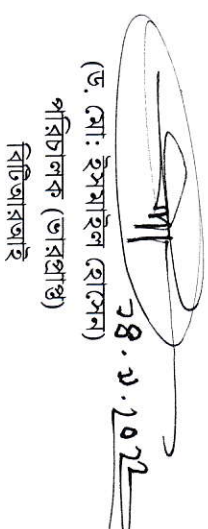 ২৪.১১.২০২২
(ড. মো: ইসমাইল হোসেন)
পরিচালক (ভারপ্রাপ্ত)
বিটিআরআই